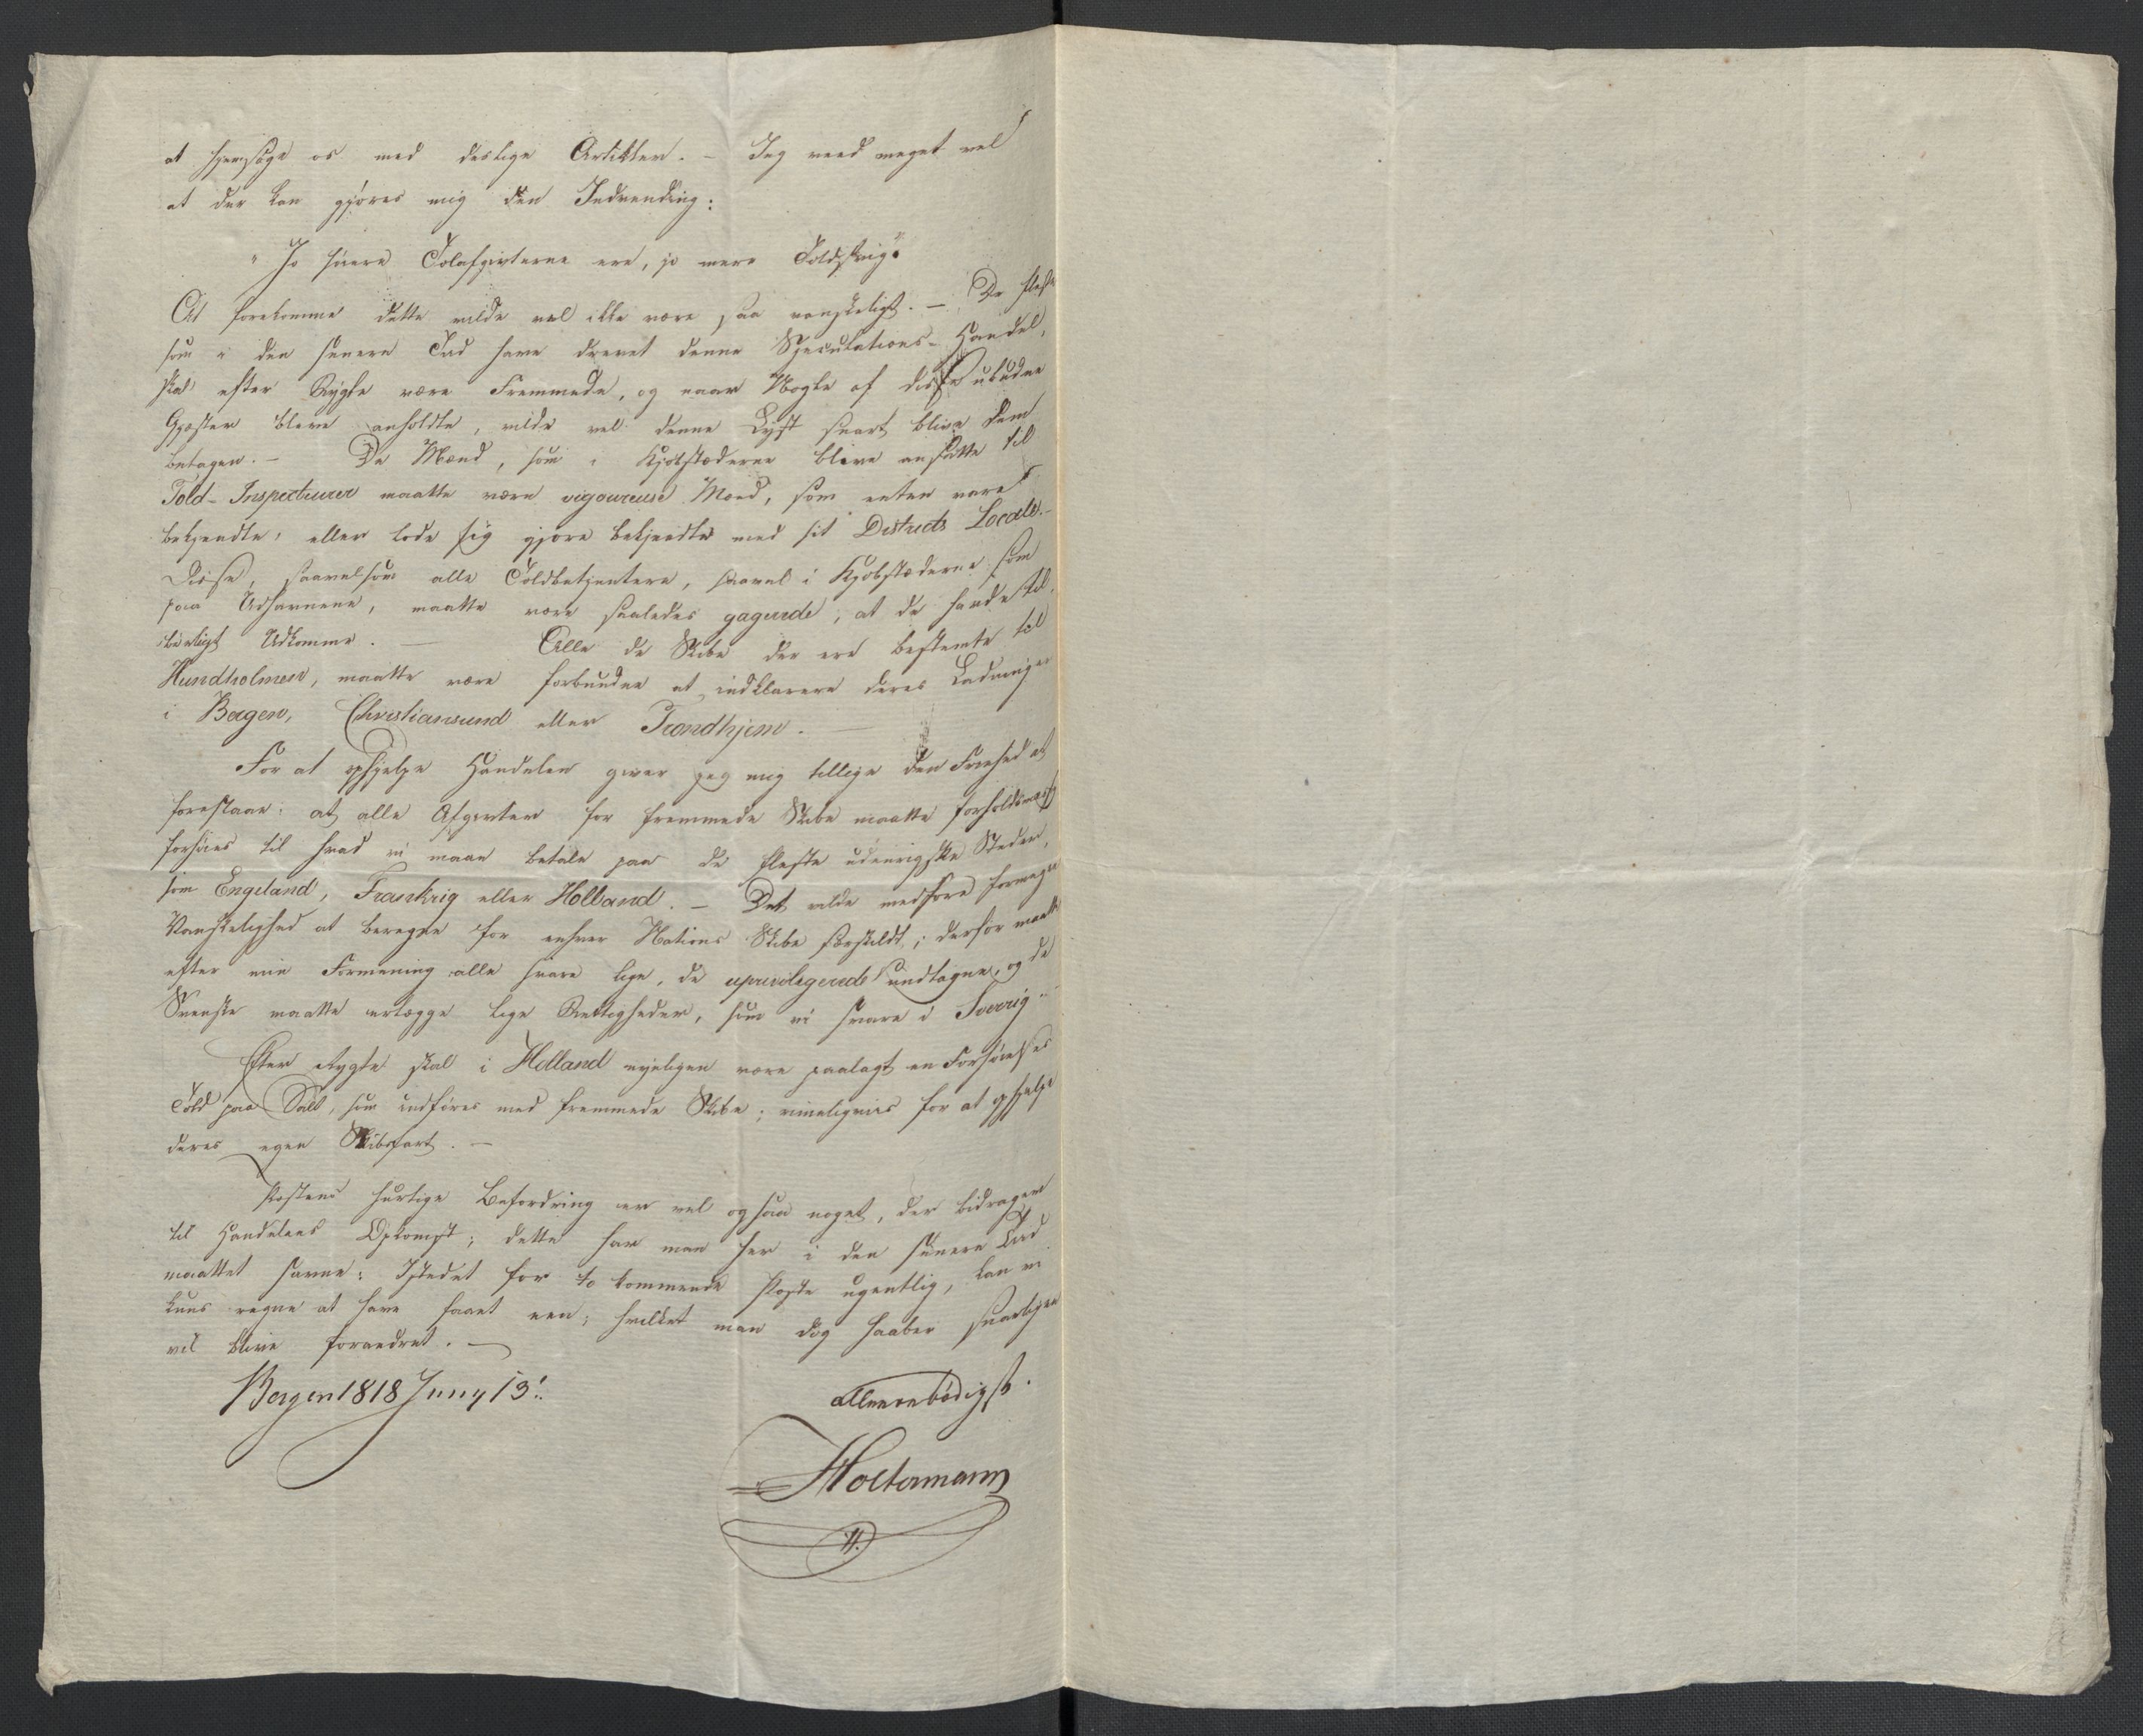 at hjemsøge os med deslige Artikler. – Jeg veed meget vel
at der kan gjøres mig den Indvending:
"Jo høiere Tolafgivterne ere, jo mere Toldsvig".
At forekomme dette vilde vel ikke være saa vanskeligt. – De fleste
som i den senere Tid have drevet denne Speculations-Handel,
skal efter Rygte være Fremmede, og naar Nogle af disse ubudne
Gjæster bleve anholdte, vilde vel denne Lyst snart blive dem
betagen. – De Mænd, som i Kjøbstæderne bleve ansatte til
Told-Inspecteurer maatte være vigoureuse Mænd, som enten vare
bekjendte, eller lode sig gjøre bekjendte med sit Districts Locale. –
Disse, saavelsom alle Toldbetjentere, saavel i Kjøbstæderne som
paa Udhavnene, maatte være saaledes gagerede, at de havde til-
børligt Udkomme. – Alle de Skibe der ere bestemte til
Hundholmen, maatte være forbundne at indklarere deres Ladninger
i Bergen, Christiansund eller Trondhjem. –
For at ophjelpe Handelen giver jeg mig tillige den Frihed at
foreslaae: at alle Afgivter for fremmede Skibe maatte forholdsmæssig
forhøies til hvad vi maae betale paa de fleste udenrigske Steder,
som Engeland, Frankrig eller Holland. – Det vilde medføre formegen
Vanskelighed at beregne for enhver Nations Skibe særskildt; derfor maatte
efter min Formening alle svare lige, de uprivilegerede undtagne, og de
Svenske maatte erlægge lige Rettigheder, som vi svare i Sverrig. –
Efter Rygte skal i Holland nyeligen være paalagt en Forhøielses
Told paa Salt, som indføres med fremmede Skibe; rimeligviis for at ophjelpe
deres egen Skibsfart. –
Postens hurtige Befordring er vel ogsaa noget, der bidrager
til Handelens Opkomst; dette har man her i den senere Tid
maattet savne: Istedet for to kommende Poste ugentlig, kan vi
kuns regne at have faaet een; hvilket man dog haaber snarligen
vil blive forandret. –
Bergen 1818 Juny 13.
Allerærbødigst.
Holtermann